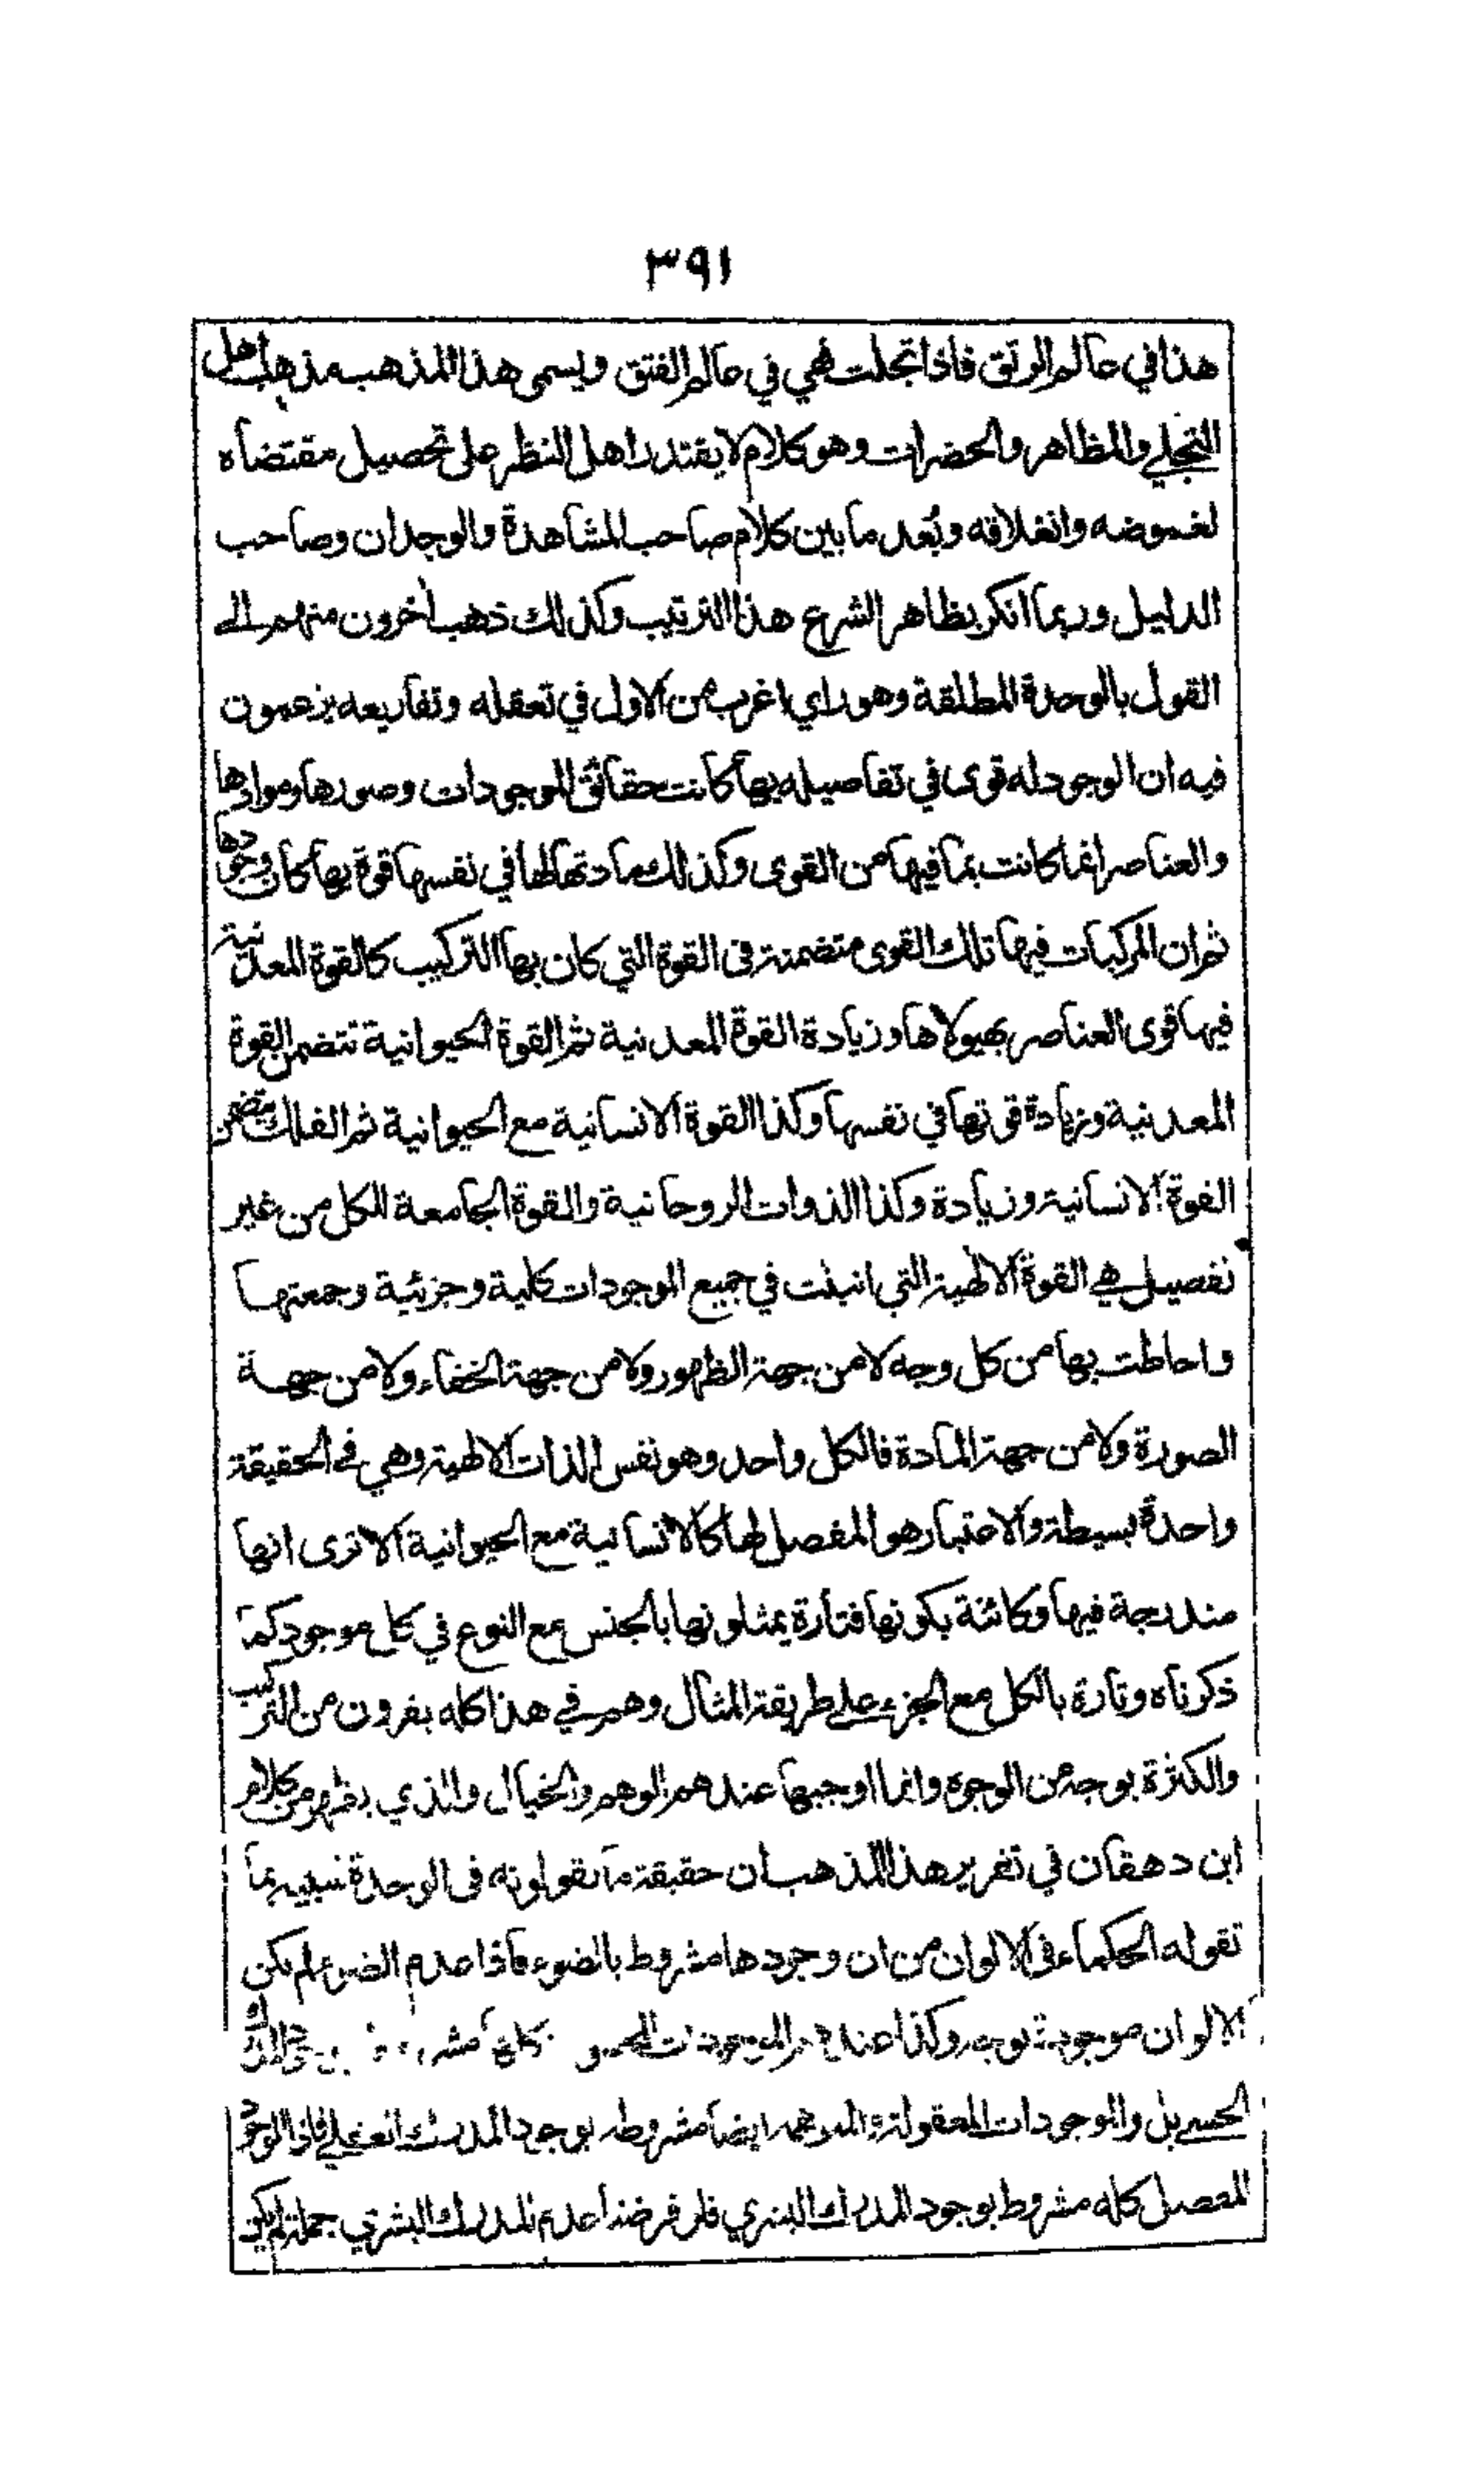 ٣٩١
هذا في عالم الرتق فاذا تجلت فهي في عالم الفتق ويسمى هذا المذهب مذهب اهل
التجلي والمظاهر والحضرات وهو كلام لا يقتدر اهل النظر على تحصيل مقتضاه
لغموضه وانغلاقه وبُعد ما بين كلام صاحب المشاهدة والوجدان وصاحب
الدليل وربما انكر بظاهر الشرع هذا الترتيب وكذلك ذهب آخرون منهم الى
القول بالوحدة المطلقة وهو راي اغرب من الاول في تعقله وتفاريعه يزعمون
فيه ان الوجود له قوى في تفاصيله بها كانت حقائق الموجودات وصورها وموادها
والعناصر انما كانت بما فيها من القوى وكذلك مادتها لها في نفسها قوة بها كان وجودها
ثم ان المركبات فيها تلك القوى متضمنة في القوة التي كان بها التركيب كالقوة المعدنية
فيها قوى العناصر بهيولاها وزيادة القوة المعدنية ثم القوة الحيوانية تتضمن القوة
المعدنية وزيادة قوتها في نفسها وكذا القوة الانسانية مع الحيوانية ثم الفلك يتضمن
القوة الانسانية وزيادة وكذا الذوات الروحانية والقوة الجامعة للكل من غير
تفصيل هي القوة الالهية التي انبثت في جميع الموجودات كلية وجزئية وجمعتها
واحاطت بها من كل وجه لا من جهة الظهور ولا من جهة الخفاء ولا من جهة
الصورة ولا من جهة المادة فالكل واحد وهو نفس الذات الالهية وهي في الحقيقة
واحدة بسيطة والاعتبار هو المفصل لها كالانسانية مع الحيوانية الا ترى انها
مندرجة فيها وكائنة بكونها فتارة يمثلونها بالجنس مع النوع في كل موجود كما
ذكرناه وتارة بالكل مع الجزء على طريقة المثال وهم في هذا كله يفرون من التركيب
والكثرة بوجه من الوجوه وانما اوجبها عندهم الوهم والخيال والذي يظهر من كلام
ابن دهقان في تقرير هذا المذهب ان حقيقة ما يقولونه في الوحدة شبيه بما
تقوله الحكماء في الالوان من ان وجودها مشروط بالضوء فاذا عدم الضوء لم تكن
الالوان موجودة بوجه وكذا عندهم الموجودات
الحسي بل والموجودات المعقولة والمتوهمة ايضا مشروطة بوجود المدرك العقلي فاذا الوجود
المفصل كله مشروط بوجود المدرك البشري فلو فرضنا عدم المدرك البشري جملة لم يكن